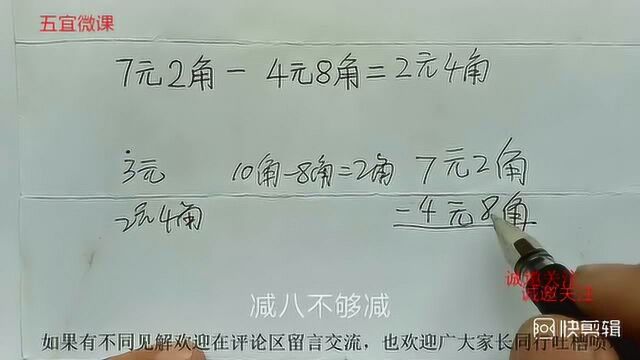 五宜微课
7元2角-4元8角=2元4角
3元 10角-8角=2角 7元2角
2元4角 -4元8角
诚邀关注
诚邀关注
减八不够减
快剪辑
如果有不同见解欢迎在评论区留言交流，也欢迎广大家长同行吐槽喷